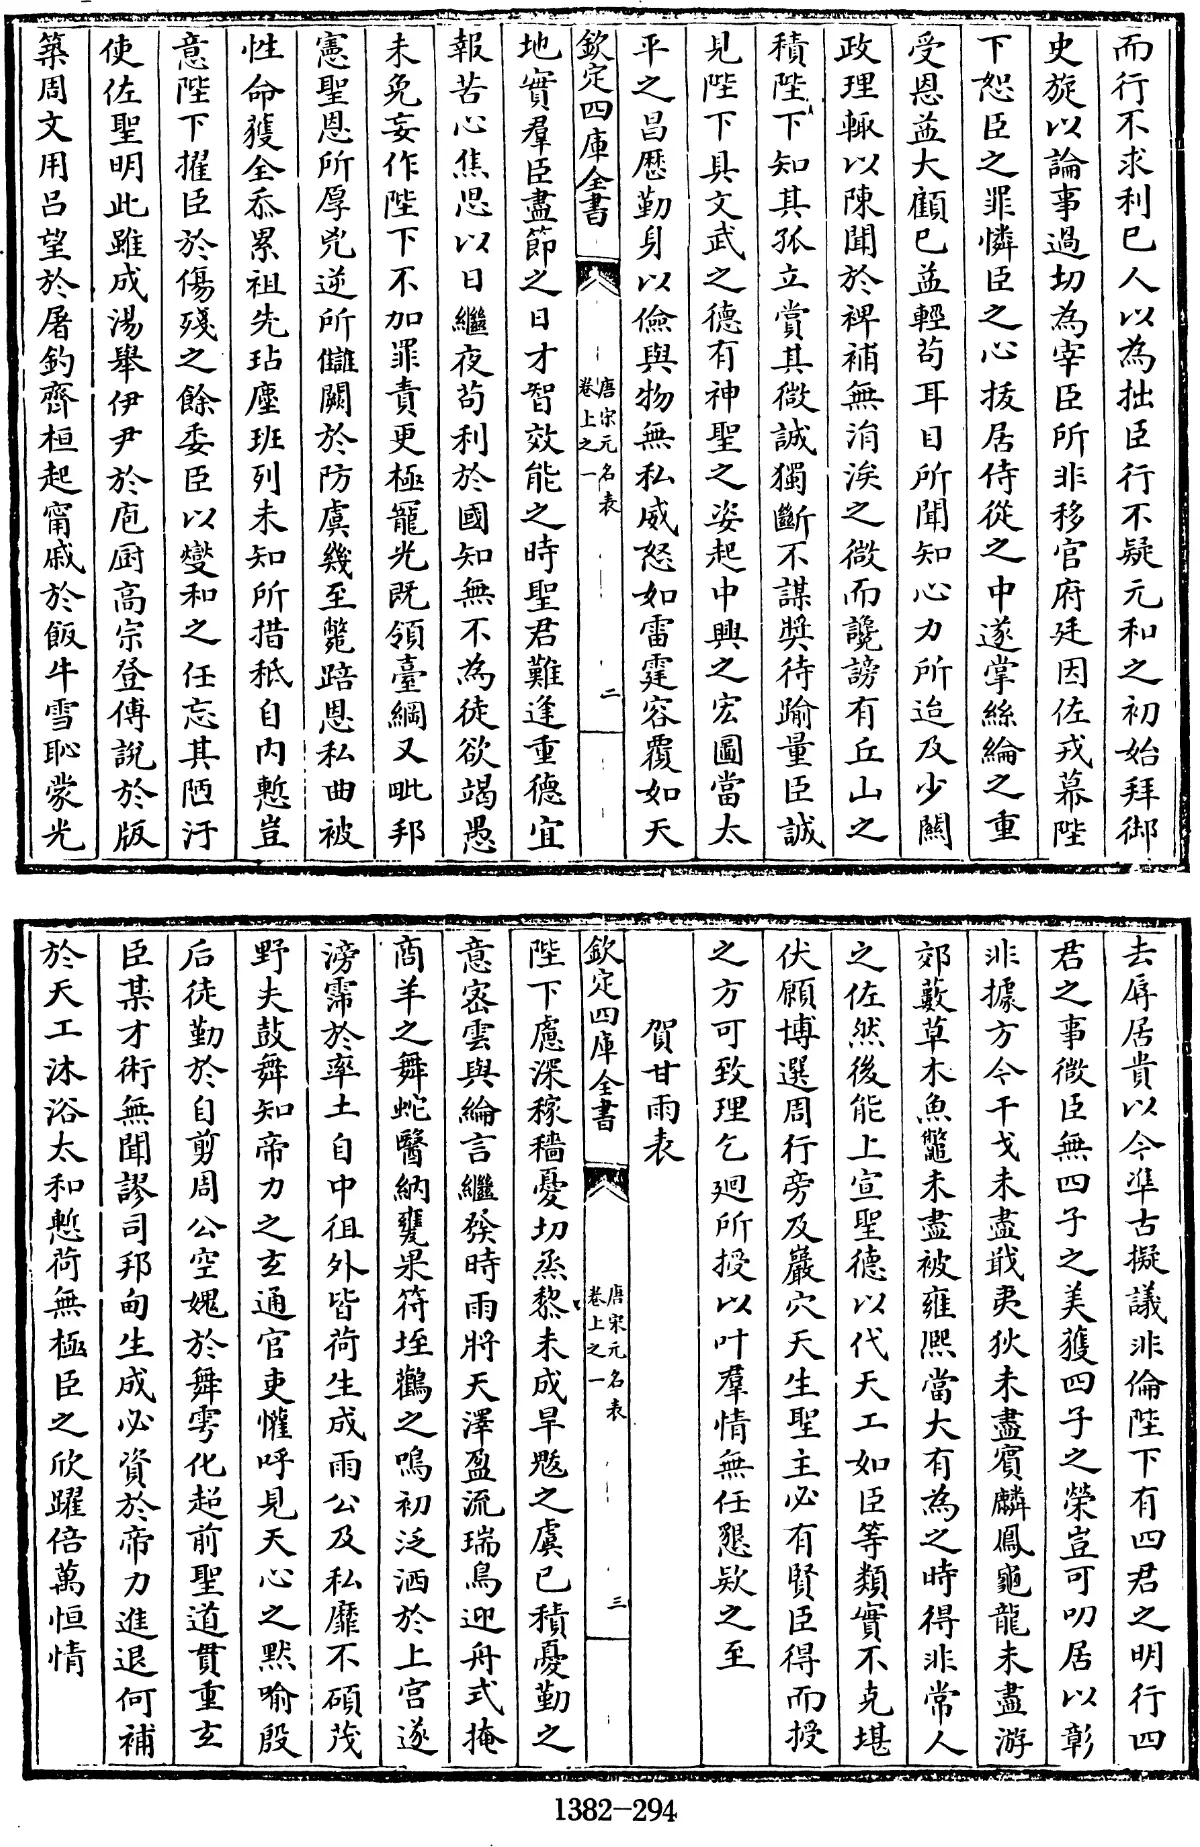 而行不求利己人以為拙臣行不疑元和之初始拜御
史旋以論事過切為宰臣所非移官府廷因佐戎幕陛
下恕臣之罪憐臣之心拔居侍從之中遂掌絲綸之重
受恩益大顧已益輕茍耳目所聞知心力所迨及少闗
政理輙以陳聞於禆補無涓涘之微而讒謗有丘山之
積陛下知其孤立賞其微誠獨斷不謀奬待踰量臣誠
見陛下具文武之德有神聖之姿起中興之宏圖當太
平之昌歴勤身以儉與物無私威怒如雷霆容覆如天
欽定四庫全書
唐宋元名表
卷上之一
二
地實羣臣盡節之日才智效能之時聖君難逢重德宜
報苦心焦思以日繼夜茍利於國知無不為徒欲竭愚
未免妄作陛下不加罪責更極寵光既領臺綱又毗邦
憲聖恩所厚兇逆所讎闕於防虞幾至斃踣恩私曲被
性命獲全忝累祖先玷塵班列未知所措秪自内慙豈
意陛下擢臣於傷殘之餘委臣以燮和之任忘其陋汙
使佐聖明此雖成湯舉伊尹於庖厨高宗登傅說於版
築周文用呂望於屠釣齊桓起甯戚於飯牛雪恥蒙光
去辱居貴以今凖古擬議非倫陛下有四君之明行四
君之事微臣無四子之美獲四子之榮豈可叨居以彰
非據方今干戈未盡戢夷狄未盡賓麟鳳龜龍未盡游
郊藪草木魚鼈未盡被雍熙當大有為之時得非常人
之佐然後能上宣聖德以代天工如臣等類實不克堪
伏願博選周行旁及巖穴天生聖主必有賢臣得而授
之方可致理乞廻所授以叶羣情無任懇欵之至
賀甘雨表
欽定四庫全書
唐宋元名表
卷上之一
三
陛下慮深稼穡憂切烝黎未成旱魃之虞已積憂勤之
意宻雲與綸言繼發時雨將天澤盈流瑞鳥迎舟式掩
商羊之舞蛇醫納甕果符垤鸛之鳴初泛洒於上宮遂
滂霈於率土自中徂外皆荷生成雨公及私靡不碩茂
野夫鼓舞知帝力之玄通官吏懽呼見天心之黙喻殷
后徒勤於自剪周公空媿於舞雩化超前聖道貫重玄
臣某才術無聞謬司邦甸生成必資於帝力進退何補
於天工沐浴太和慙荷無極臣之欣躍倍萬恒情
1382-294